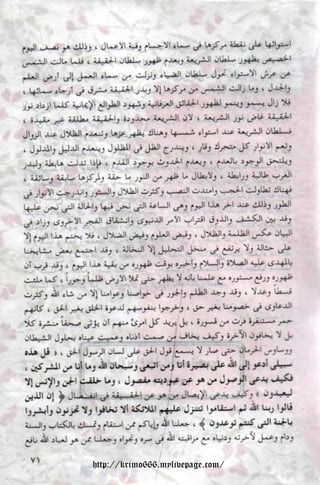 استوائها على نقطة مركزها في سماء الاجسام وقبة الاعمال ، وذلك هو نصف اليوم
الخصيص بظهور سلطان الشريعة وبعدم ظهور سلطان الحقيقة ، فلما مالت الشمس
عن عرش الاستواء تحول سلطان الضياء ونزلت من سماء العمل إلى أرض العلم
والجدل ، وما زالت الشمس من مركزها إلا وبدر الحقيقة مشرق في أرجاء سمائها ،
فلا زال يسمو وينمو لظهور الحقائق العرفانية وشهود الطوالع الإيمانية كلما ازداد نور
الحقيقة غاض نور الشريعة ، لأن الشريعة محدودة والحقيقة مطلقة غير مقيدة ،
فسلطان الشريعة عند استواء شمسها وهناك يظهر عزها وتنعدم الظلال عند الزوال
وتعم الانوار كل متحرك وقار ، ويندرج الظل في المظلول وينعدم الدليل والمدلول ،
ويلتحق الوجود بالعدم ، ويعدم الحدوث بوجود القدم ، فاذا تدلت هابطة ولبدر
الغرب طالبة ورابطة ، ولابطال ما ظهر من النور ما حقة ولمركزها سابقة وسائقة ،
فهناك تطاولت الحجب وامتدت النصب وكثرت الظلال والستور واندرجت الانوار في
الطور وذلك عند اخر هذا اليوم وهي الساعة التي نحن فيها والحالة التي نحن عليها
وقد بين الكشف والذوق اقتراب الامر الدنيوي وانشقاق الفجر الأخروي وزاد في
البيان عكس الظلمة والظلال ، وقبض العلوم وفيض الضلال ، فلا يختم هذا اليوم إلا
على حثالة ولا يرتفع في منخل التحليل إلا النخالة ، وقد اجتمع بعض مشايخنا
بالمهدي عليه الصلاة والسلام وأخبره بوقت ظهوره من بقية هذا اليوم ، وقد قرب آن
ظهوره ورفع مستوره مع علمنا بأنه لا يظهر حتى تملأ الأرض ظلماً وجوراً ، كما ملئت
قسطاً وعدلاً ، وقد وجد الظلم والجور في خواصنا وعوامنا إلا من شاء الله وكثرت
الدعاوى في خصوصنا بغير حق ، وخرجوا بنفوسهم لدعوة الخلق بغير الحق ، كأنهم
حمر مستنفرة فرت من قسورة ، بل يريد كل امرئ منهم أن يؤتى صحفاً منشرة كلا
بل لا يخافون الآخرة وكيف يخاف من صمت أذناه وعميت عيناه بحلول الشيطان
ووساوس الحرمان حتى صار لا يسمع قول الحق على لسان الرسول الحق ، ﴿ قل هذه
سبيلي أدعو إلى الله على بصيرة أنا ومن اتبعني وسبحان الله وما أنا من المشركين ،
فكيف يدعي الوصول من هو عن عبوديته مفصول ، وما خلقت الجن والإنس إلا
ليعبدون ﴾ وكيف يدعي الإيصال من هو عن الحقيقة في انفصال ﴿ إن الذين
قالوا ربنا الله ثم استقاموا تتنزل عليهم الملائكة ألا تخافوا ولا تحزنوا وأبشروا
بالجنة التي كنتم توعدون ﴾ ، جعلنا الله وإياكم ممن استقام وتمسك بالكتاب والسنة
ودام وعمل لآخرته ودنياه مع مراقبته الله في سره ونجواه وجعلنا ممن هو لعباد الله نافع
٧١
http://krimo666.mylivepage.com/